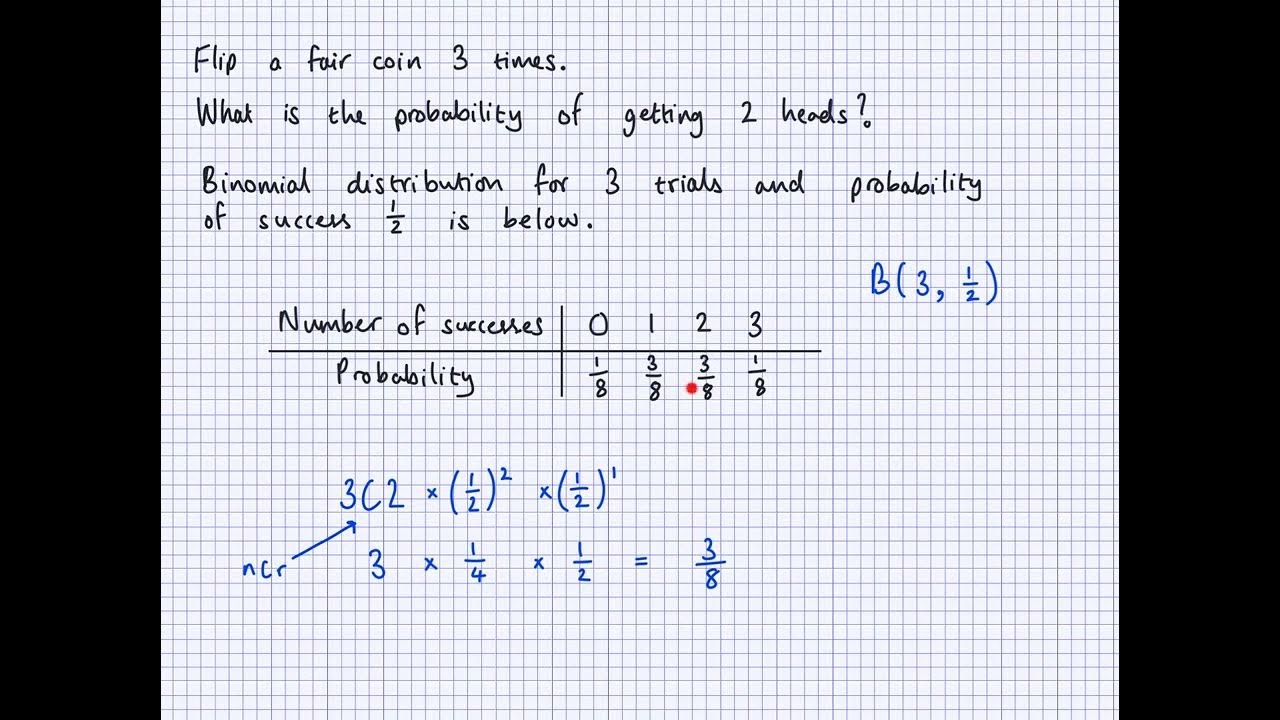 Flip a fair coin 3 times.
What is the probability of getting 2 heads?
Binomial distribution for 3 trials and probability
of success 1/2 is below.
B(3, 1/2)
Number of successes | 0 1 2 3
Probability | 1/8 3/8 3/8 1/8
3C2 × (1/2)² × (1/2)¹
ncr 3 × 1/4 × 1/2 = 3/8